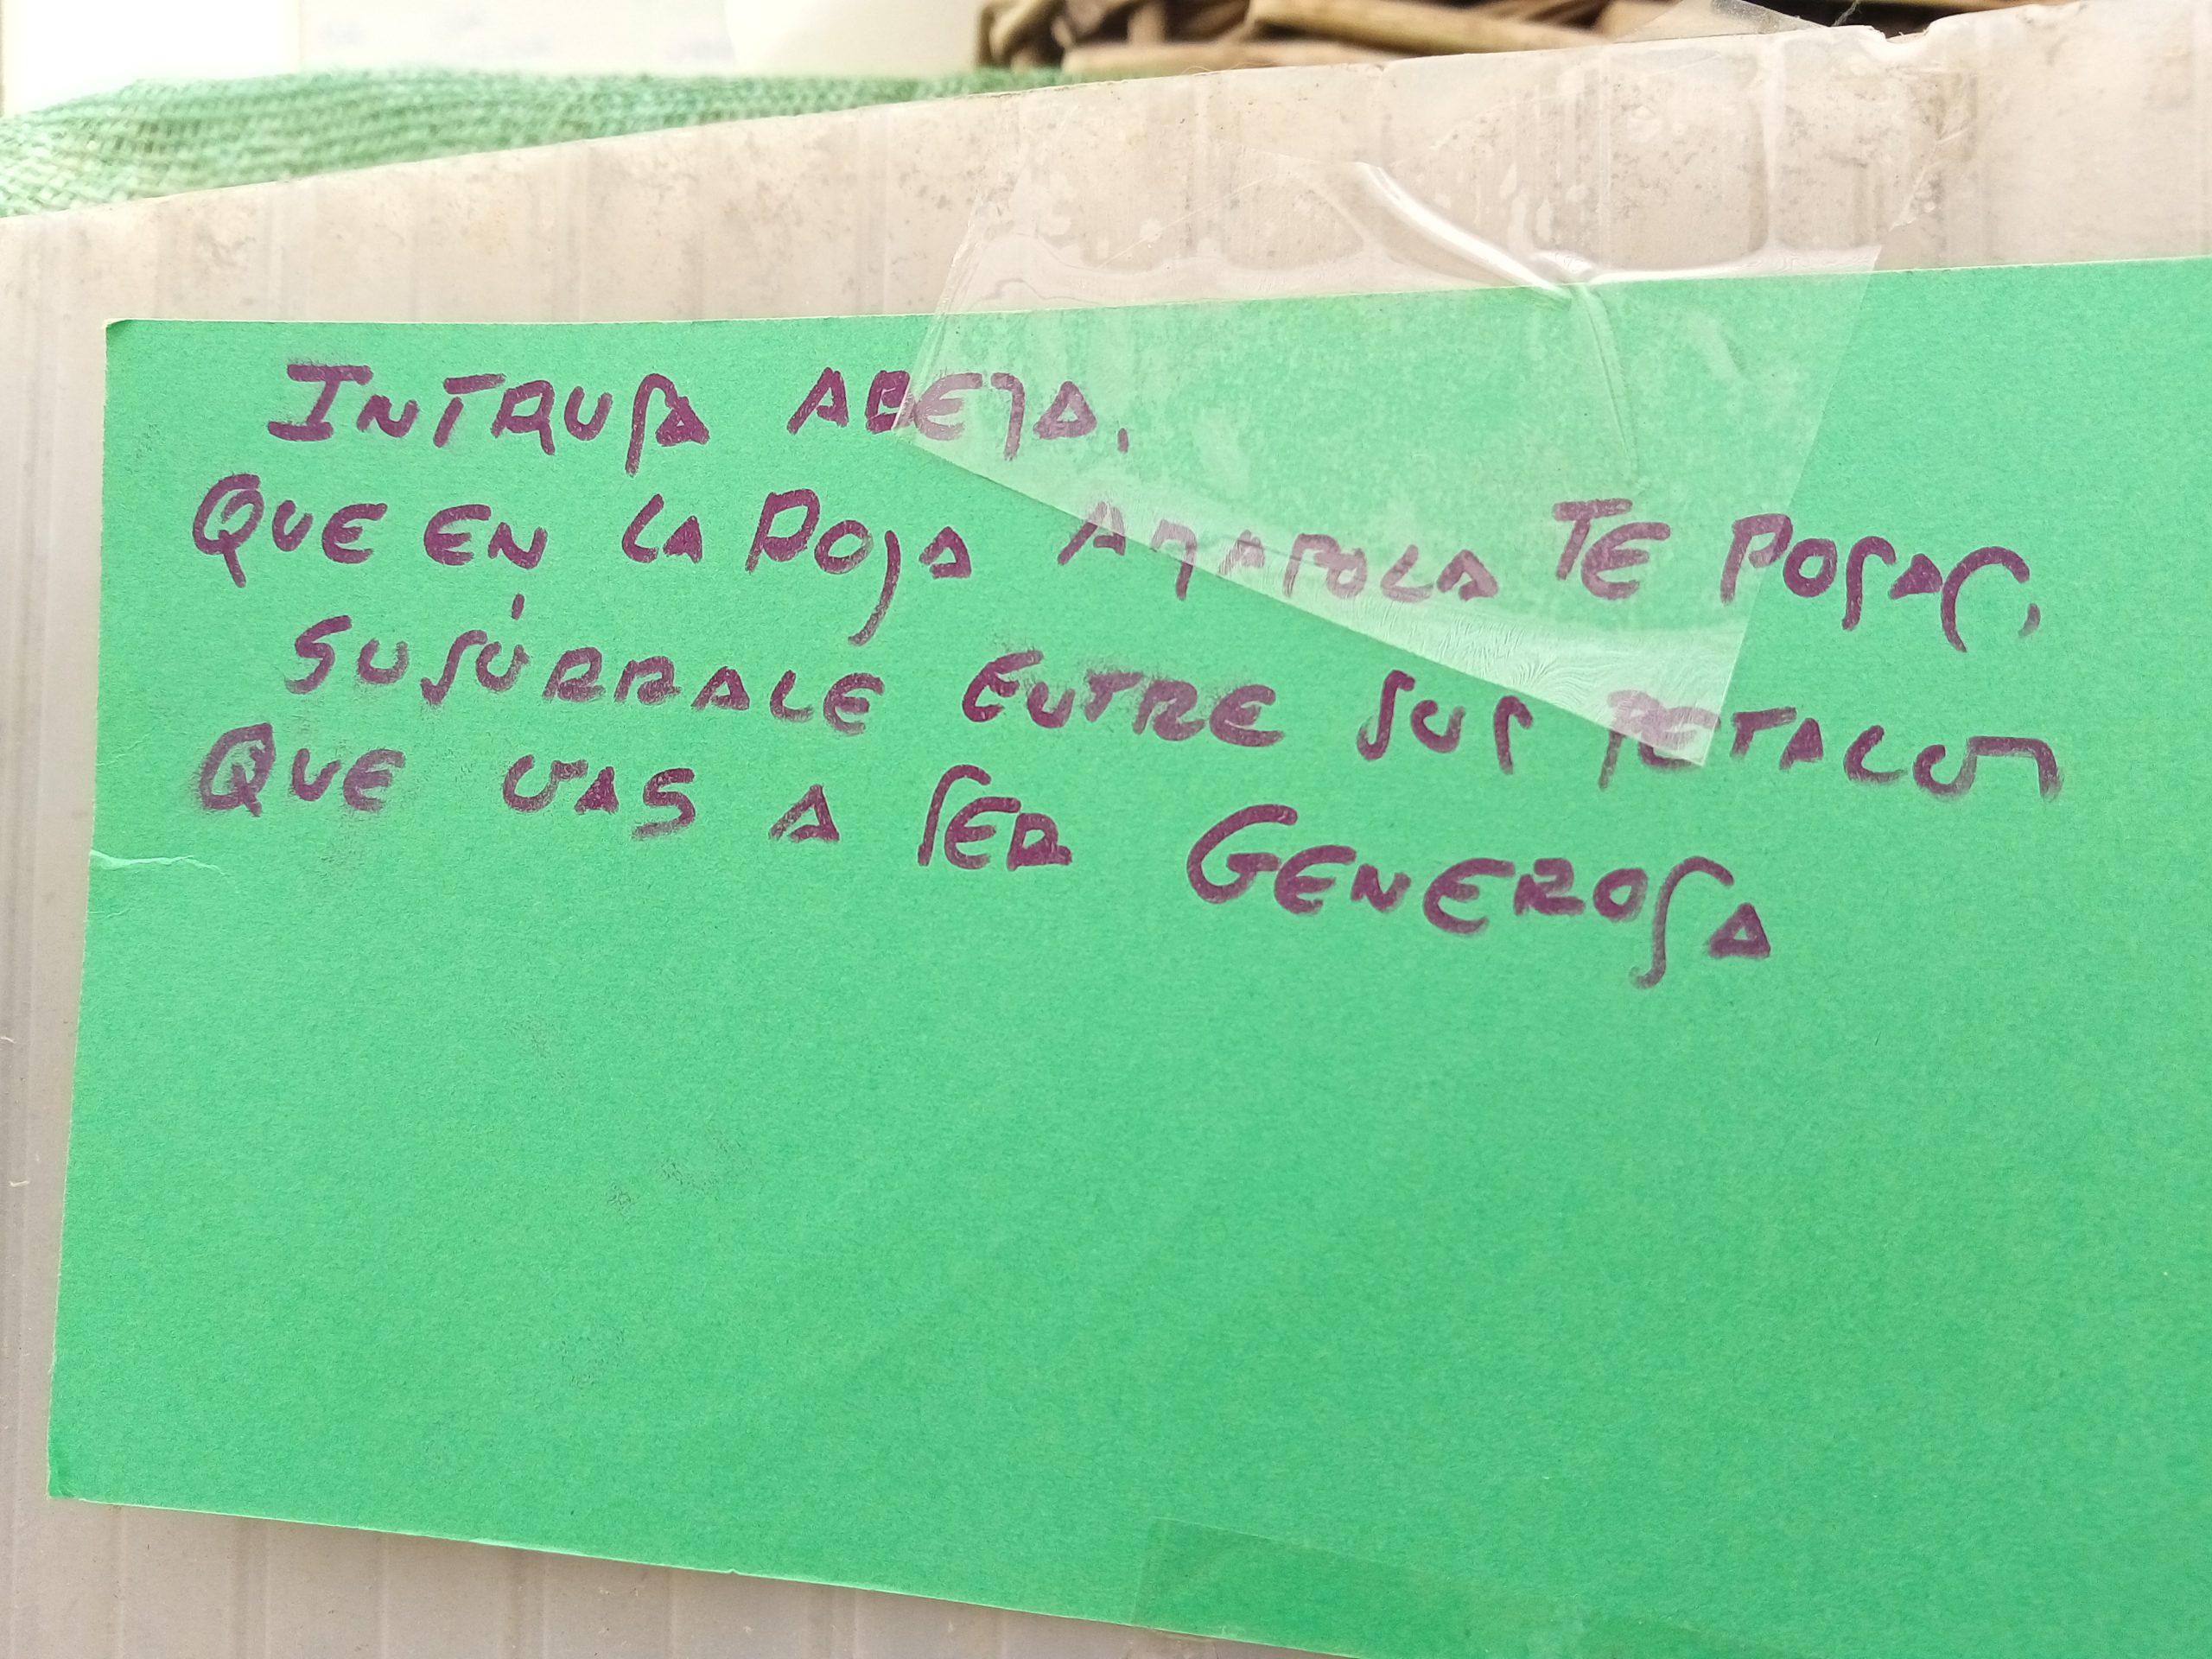 INTRUSA ABEJA,
QUE EN LA ROJA AMAPOLA TE POSAS,
SUSÚRRALE ENTRE SUS PETALOS
QUE VAS A SER GENEROSA